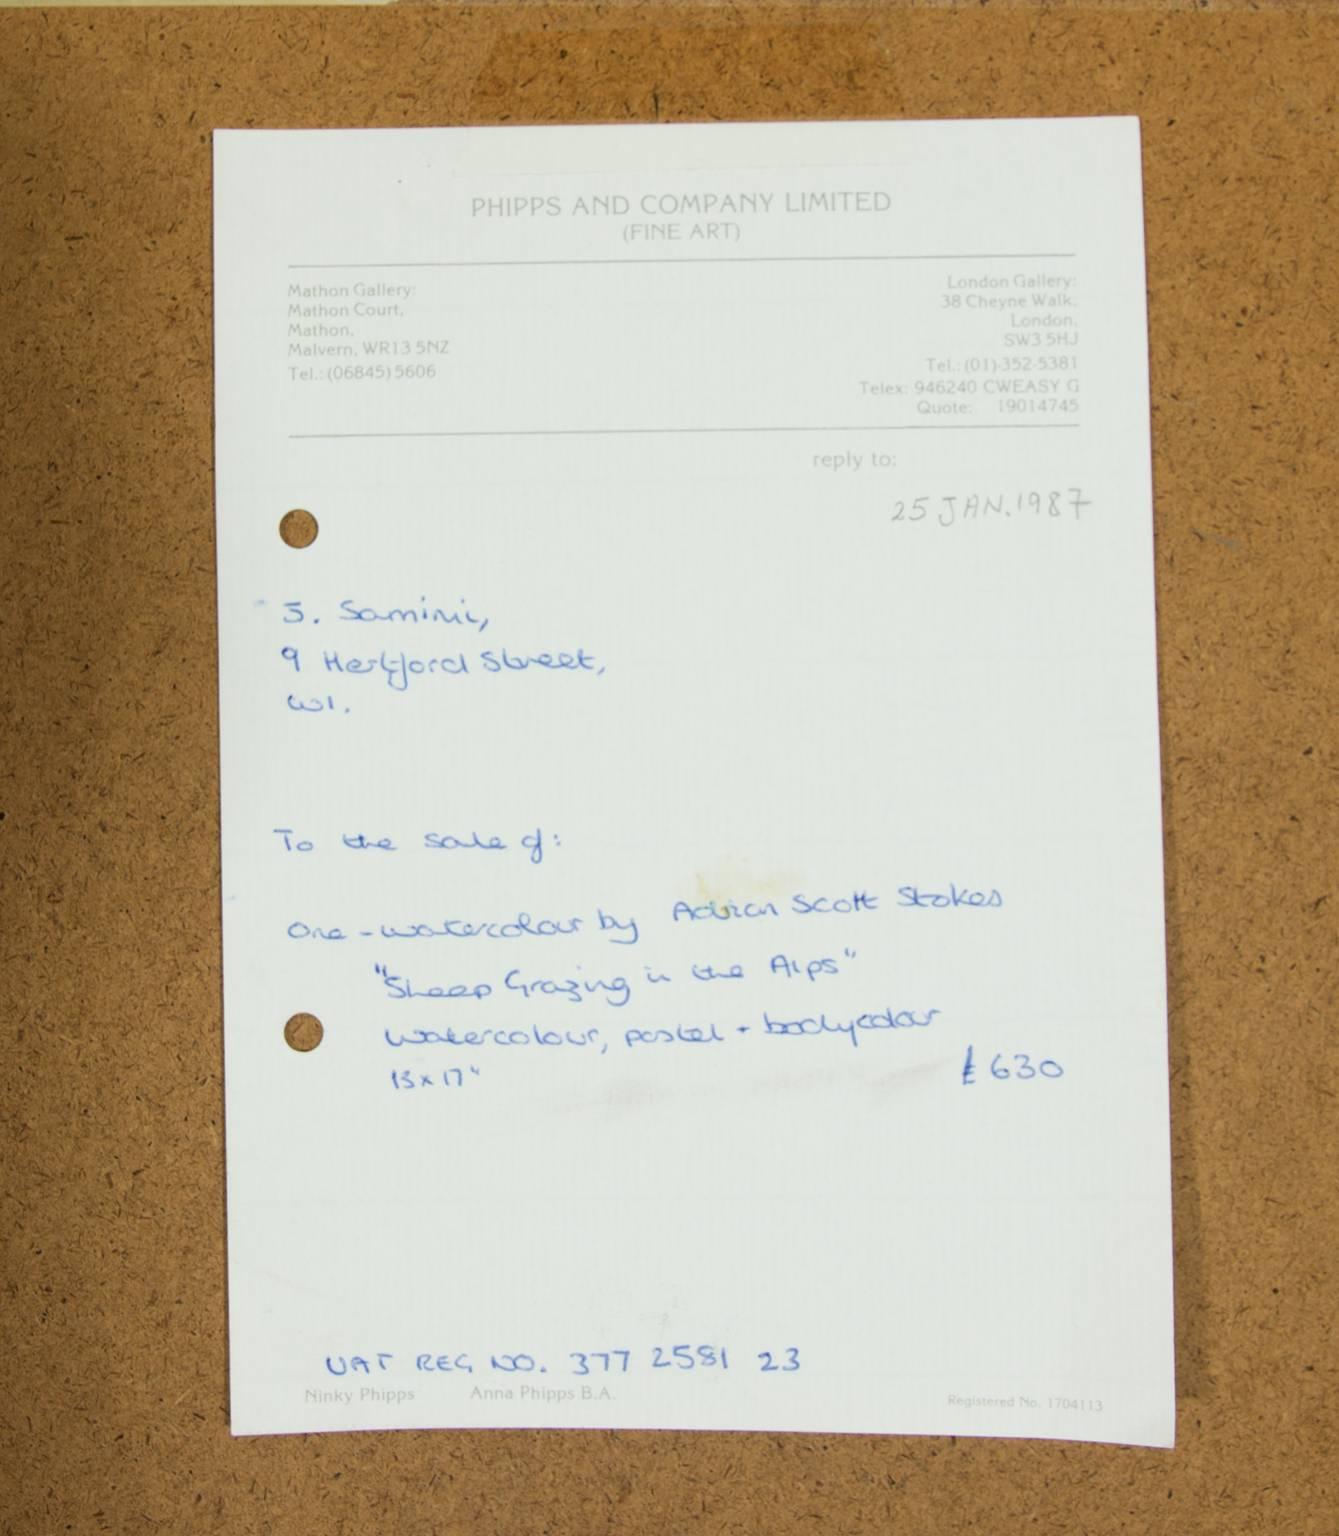 PHIPPS AND COMPANY LIMITED
(FINE ART)
Mathon Gallery:
Mathon Court,
Mathon,
Malvern, WR13 5NZ
Tel.: (06845) 5606
London Gallery:
38 Cheyne Walk,
London,
SW3 5HJ
Tel.: (01)-352-5381
Telex: 946240 CWEASY G
Quote: 19014745
reply to:
25 JAN. 1987
J. Saminic,
9 Hertford Street,
W1.
To the sale of:
One - watercolour by Adrian Scott Stokes
"Sheep Grazing in the Alps"
watercolour, pastel + bodycolour
13 x 17"
£630
VAT REG NO. 377 2581 23
Ninky Phipps
Anna Phipps B.A.
Registered No. 1704113